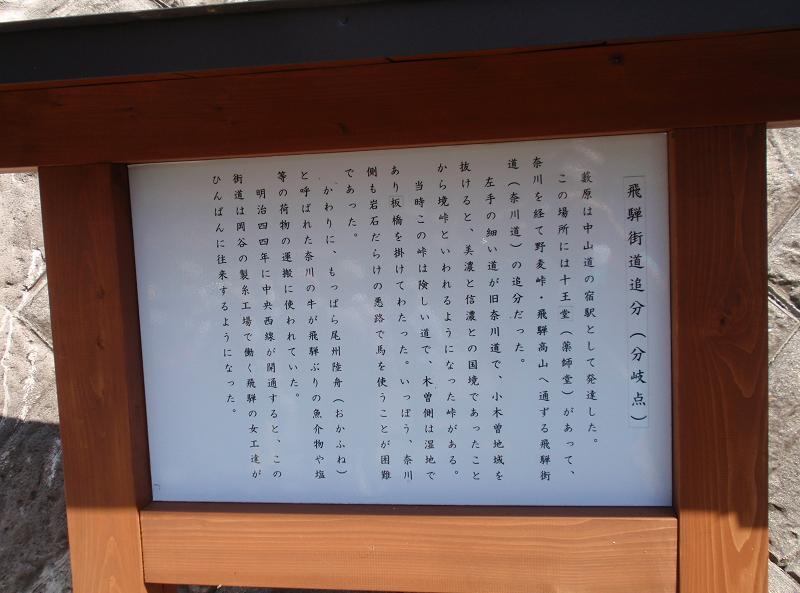 飛騨街道追分（分岐点）
藪原は中山道の宿駅として発達した。
この場所には十王堂（薬師堂）があって、
奈川を経て野麦峠・飛騨高山へ通ずる飛騨街
道（奈川道）の追分だった。
左手の細い道が旧奈川道で、小木曽地域を
抜けると、美濃と信濃との国境であったこと
から境峠といわれるようになった峠がある。
当時この峠は険しい道で、木曽側は湿地で
あり板橋を掛けてわたった。いっぽう、奈川
側も岩石だらけの悪路で馬を使うことが困難
であった。
かわりに、もっぱら尾州陸舟（おかふね）
と呼ばれた奈川の牛が飛騨ぶりの魚介物や塩
等の荷物の運搬に使われていた。
明治四四年に中央西線が開通すると、この
街道は岡谷の製糸工場で働く飛騨の女工達が
ひんぱんに往来するようになった。